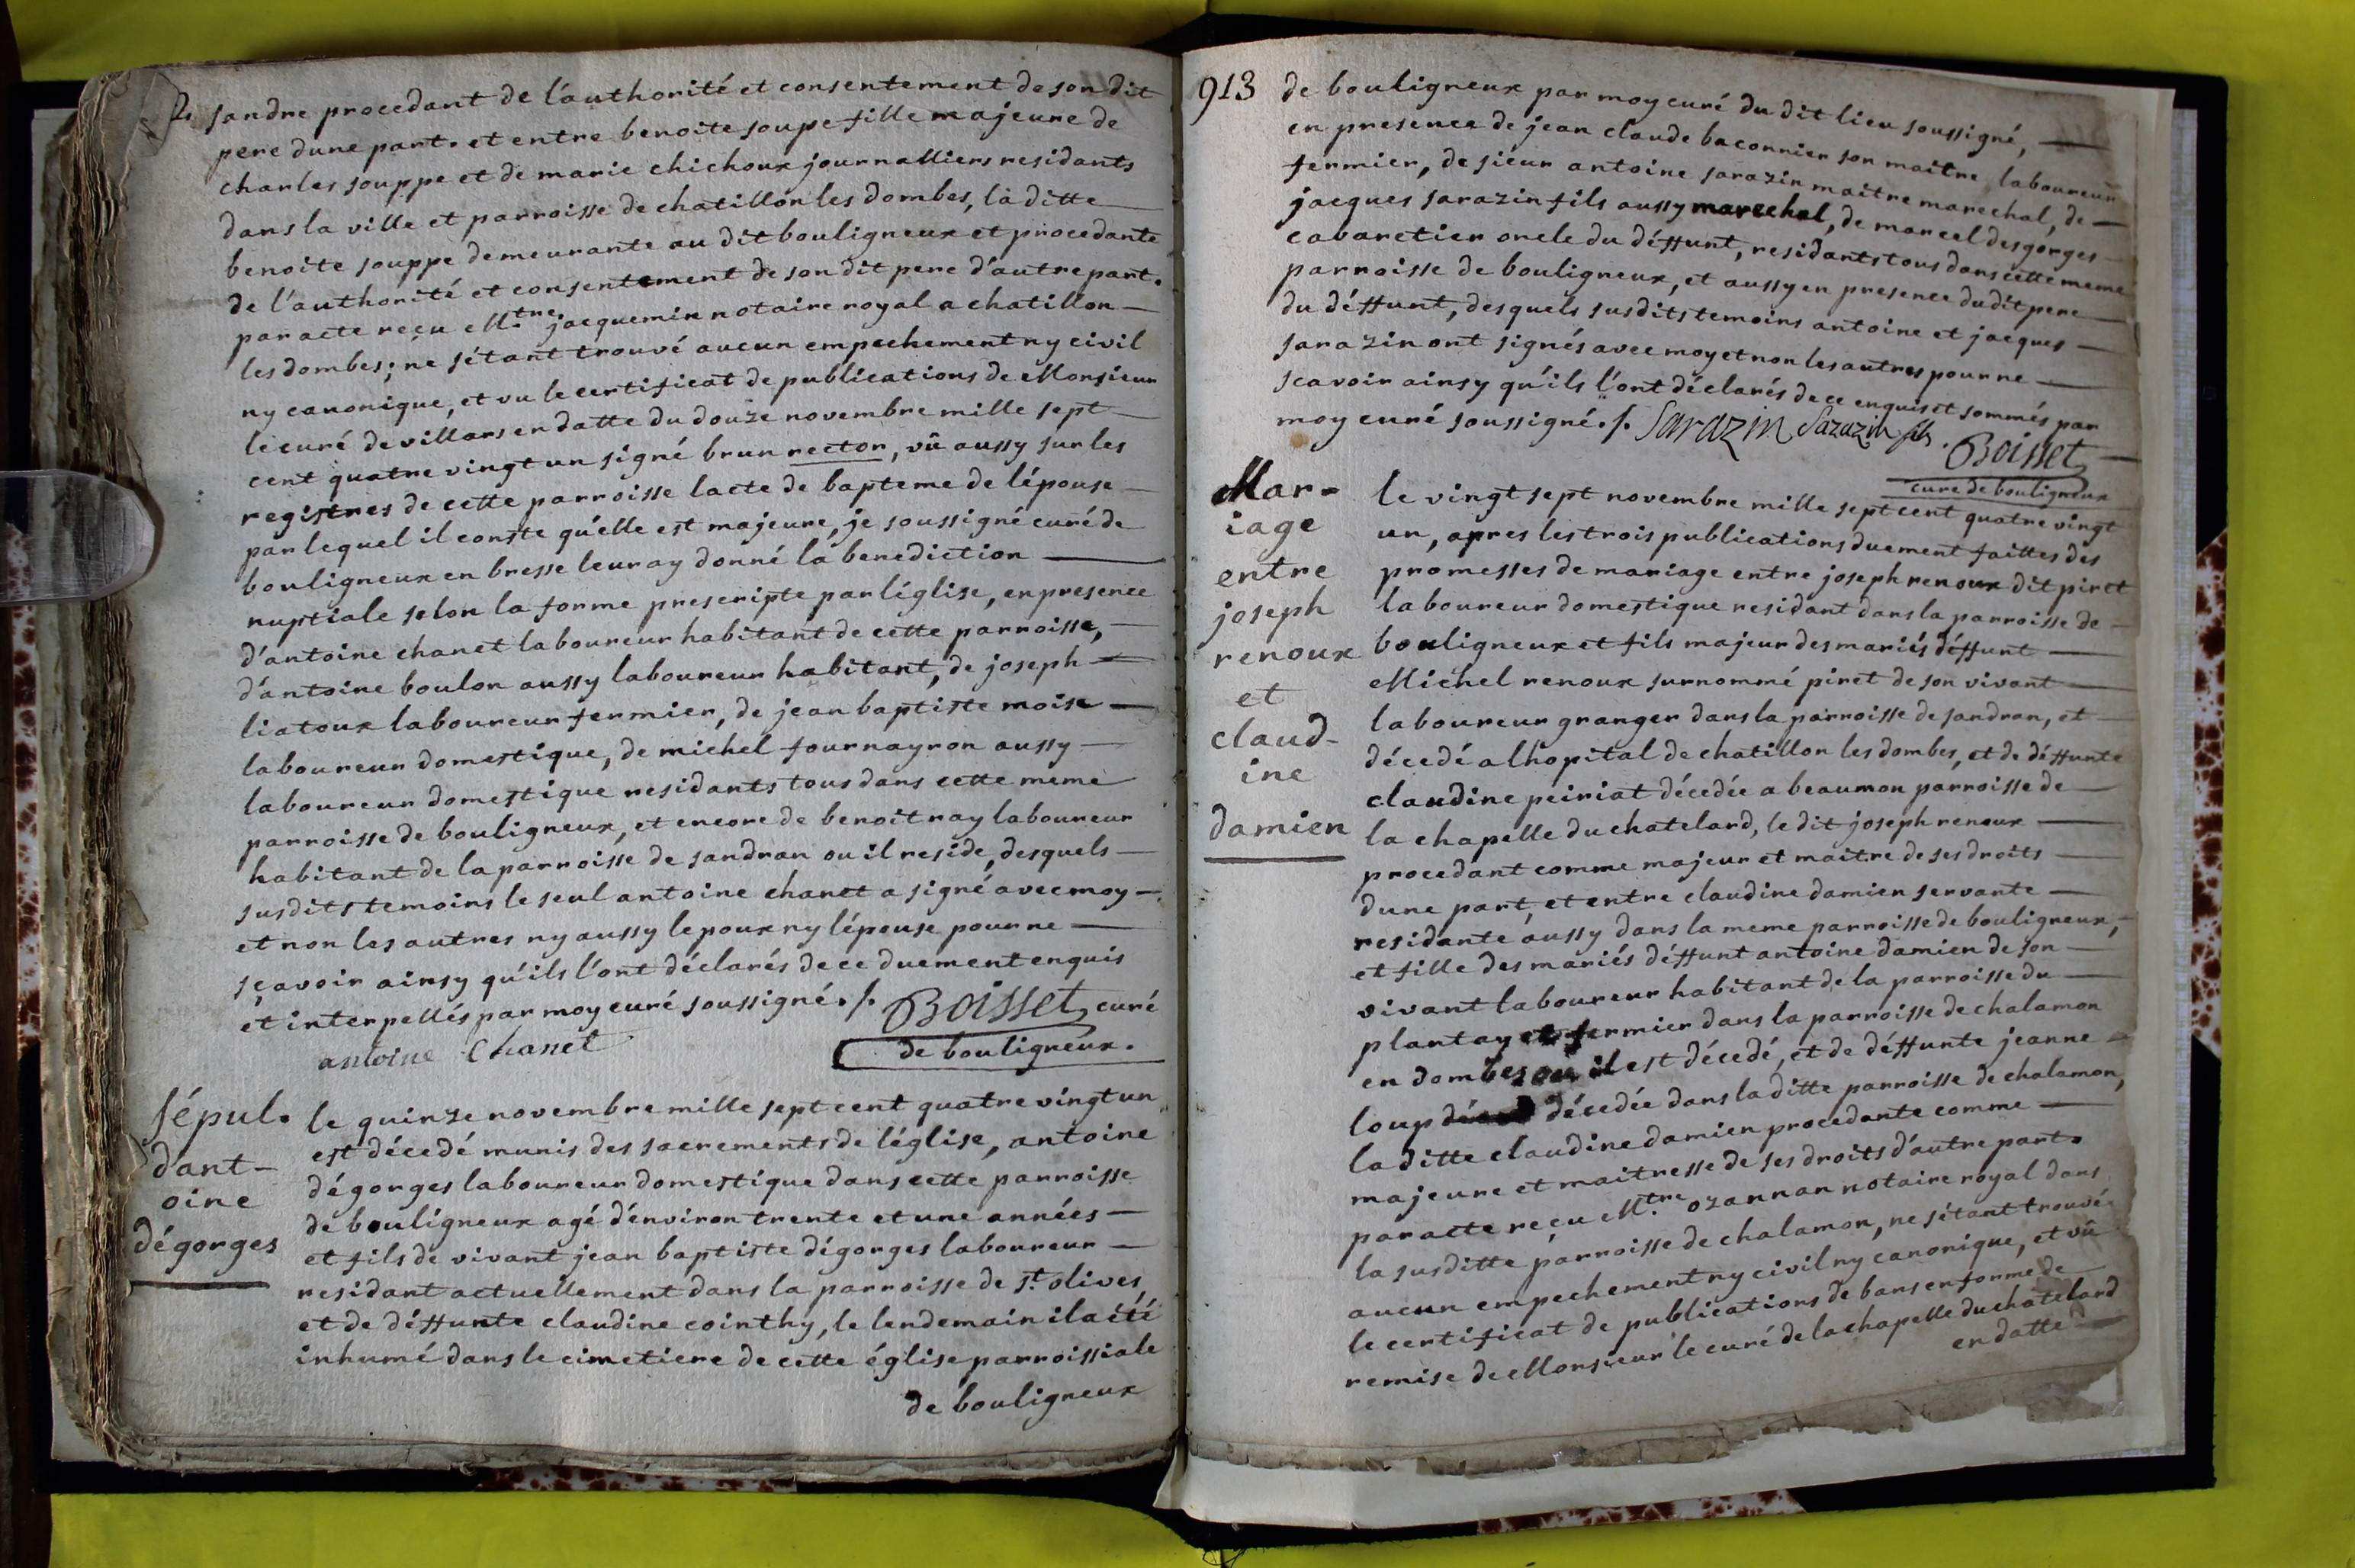 sandre procedant de l'authorité et consentement de son dit
pere dune part. et entre benoite soupe fille majeure de
charles souppe et de marie chichoux journalliers residants
dans la ville et parroisse de chatillon les dombes, la ditte
benoite souppe demeurante au dit bouligneux et procedante
de l'authorité et consentement de son dit pere d'autre part.
par acte reçu M.tre jacquemin notaire royal a chatillon
les dombes; ne s'étant trouvé aucun empechement ny civil
ny canonique, et vu le certificat de publications de Monsieur
le curé de villars en datte du douze novembre mille sept
cent quatre vingt un signé brun rector, vû aussy sur les
registres de cette parroisse lacte de bapteme de lépouse
par lequel il conste qu'elle est majeure, je soussigné curé de
bouligneux en bresse leur ay donné la benediction
nuptiale selon la forme prescripte par léglise, en presence
d'antoine chanet laboureur habitant de cette parroisse,
d'antoine boulon aussy laboureur habitant, de joseph
liatoux laboureur fermier, de jean baptiste moise
laboureur domestique, de michel fournayron aussy
laboureur domestique residants tous dans cette meme
parroisse de bouligneux, et encore de benoit ray laboureur
habitant de la parroisse de sandran ou il reside, desquels
susdits temoins le seul antoine chanet a signé avec moy
et non les autres ny aussy lepoux ny lépouse pour ne
sçavoir ainsy qu'ils l'ont déclarés de ce duement enquis
et interpellés par moy curé soussigné./. Boisset curé
antoine Chanet de bouligneux.
sépul.
dant-
oine
dégorges
le quinze novembre mille sept cent quatre vingt un
est décedé munis des sacrements de léglise, antoine
dégorges laboureur domestique dans cette parroisse
de bouligneux agé d'environ trente et une années
et fils de vivant jean baptiste dégorges laboureur
residant actuellement dans la parroisse de s.t olives,
et de déffunte claudine cointhy, le lendemain il a été
inhumé dans le cimetiere de cette église parroissiale
de bouligneux
913
de bouligneux par moy curé du dit lieu soussigné,
en presence de jean claude baconnier son maitre laboureur
fermier, de sieur antoine sarazin maitre marechal, de
jacques sarazin fils aussy marechal, de marcel desgorges
cabaretier oncle du déffunt, residants tous dans cette meme
parroisse de bouligneux, et aussy en presence du dit pere
du déffunt, desquels susdits temoins antoine et jacques
sarazin ont signés avec moy et non les autres pour ne
scavoir ainsy qu'ils l'ont déclarés de ce enquis et sommés par
moy curé soussigné./. Sarazin Sarazin fils.
Boisset
curé de bouligneux
Mar-
iage
entre
joseph
renoux
et
claud-
ine
damien
le vingt sept novembre mille sept cent quatre vingt
un, apres les trois publications duement faittes des
promesses de mariage entre joseph renoux dit piret
laboureur domestique residant dans la parroisse de
bouligneux et fils majeur des mariés déffunt
Michel renoux surnommé piret de son vivant
laboureur granger dans la parroisse de sandran, et
décedé a lhopital de chatillon les dombes, et de déffunte
claudine peiriat décedée a beaumon parroisse de
la chapelle du chatelard, le dit joseph renoux
procedant comme majeur et maitre de ses droits
dune part, et entre claudine damien servante
residante aussy dans la meme parroisse de bouligneux,
et fille des mariés déffunt antoine damien de son
vivant laboureur habitant de la parroisse du
plantay et fermier dans la parroisse de chalamon
en dombes ou il est décedé, et de déffunte jeanne
loup décedée dans la ditte parroisse de chalamon,
la ditte claudine damien procedante comme
majeure et maitresse de ses droits d'autre part.
par acte reçu M.tre ozannan notaire royal dans
la susditte parroisse de chalamon, ne s'étant trouvé
aucun empechement ny civil ny canonique, et vû
le certificat de publications de bans en forme de
remise de Monsieur le curé de la chapelle du chatelard
en datte